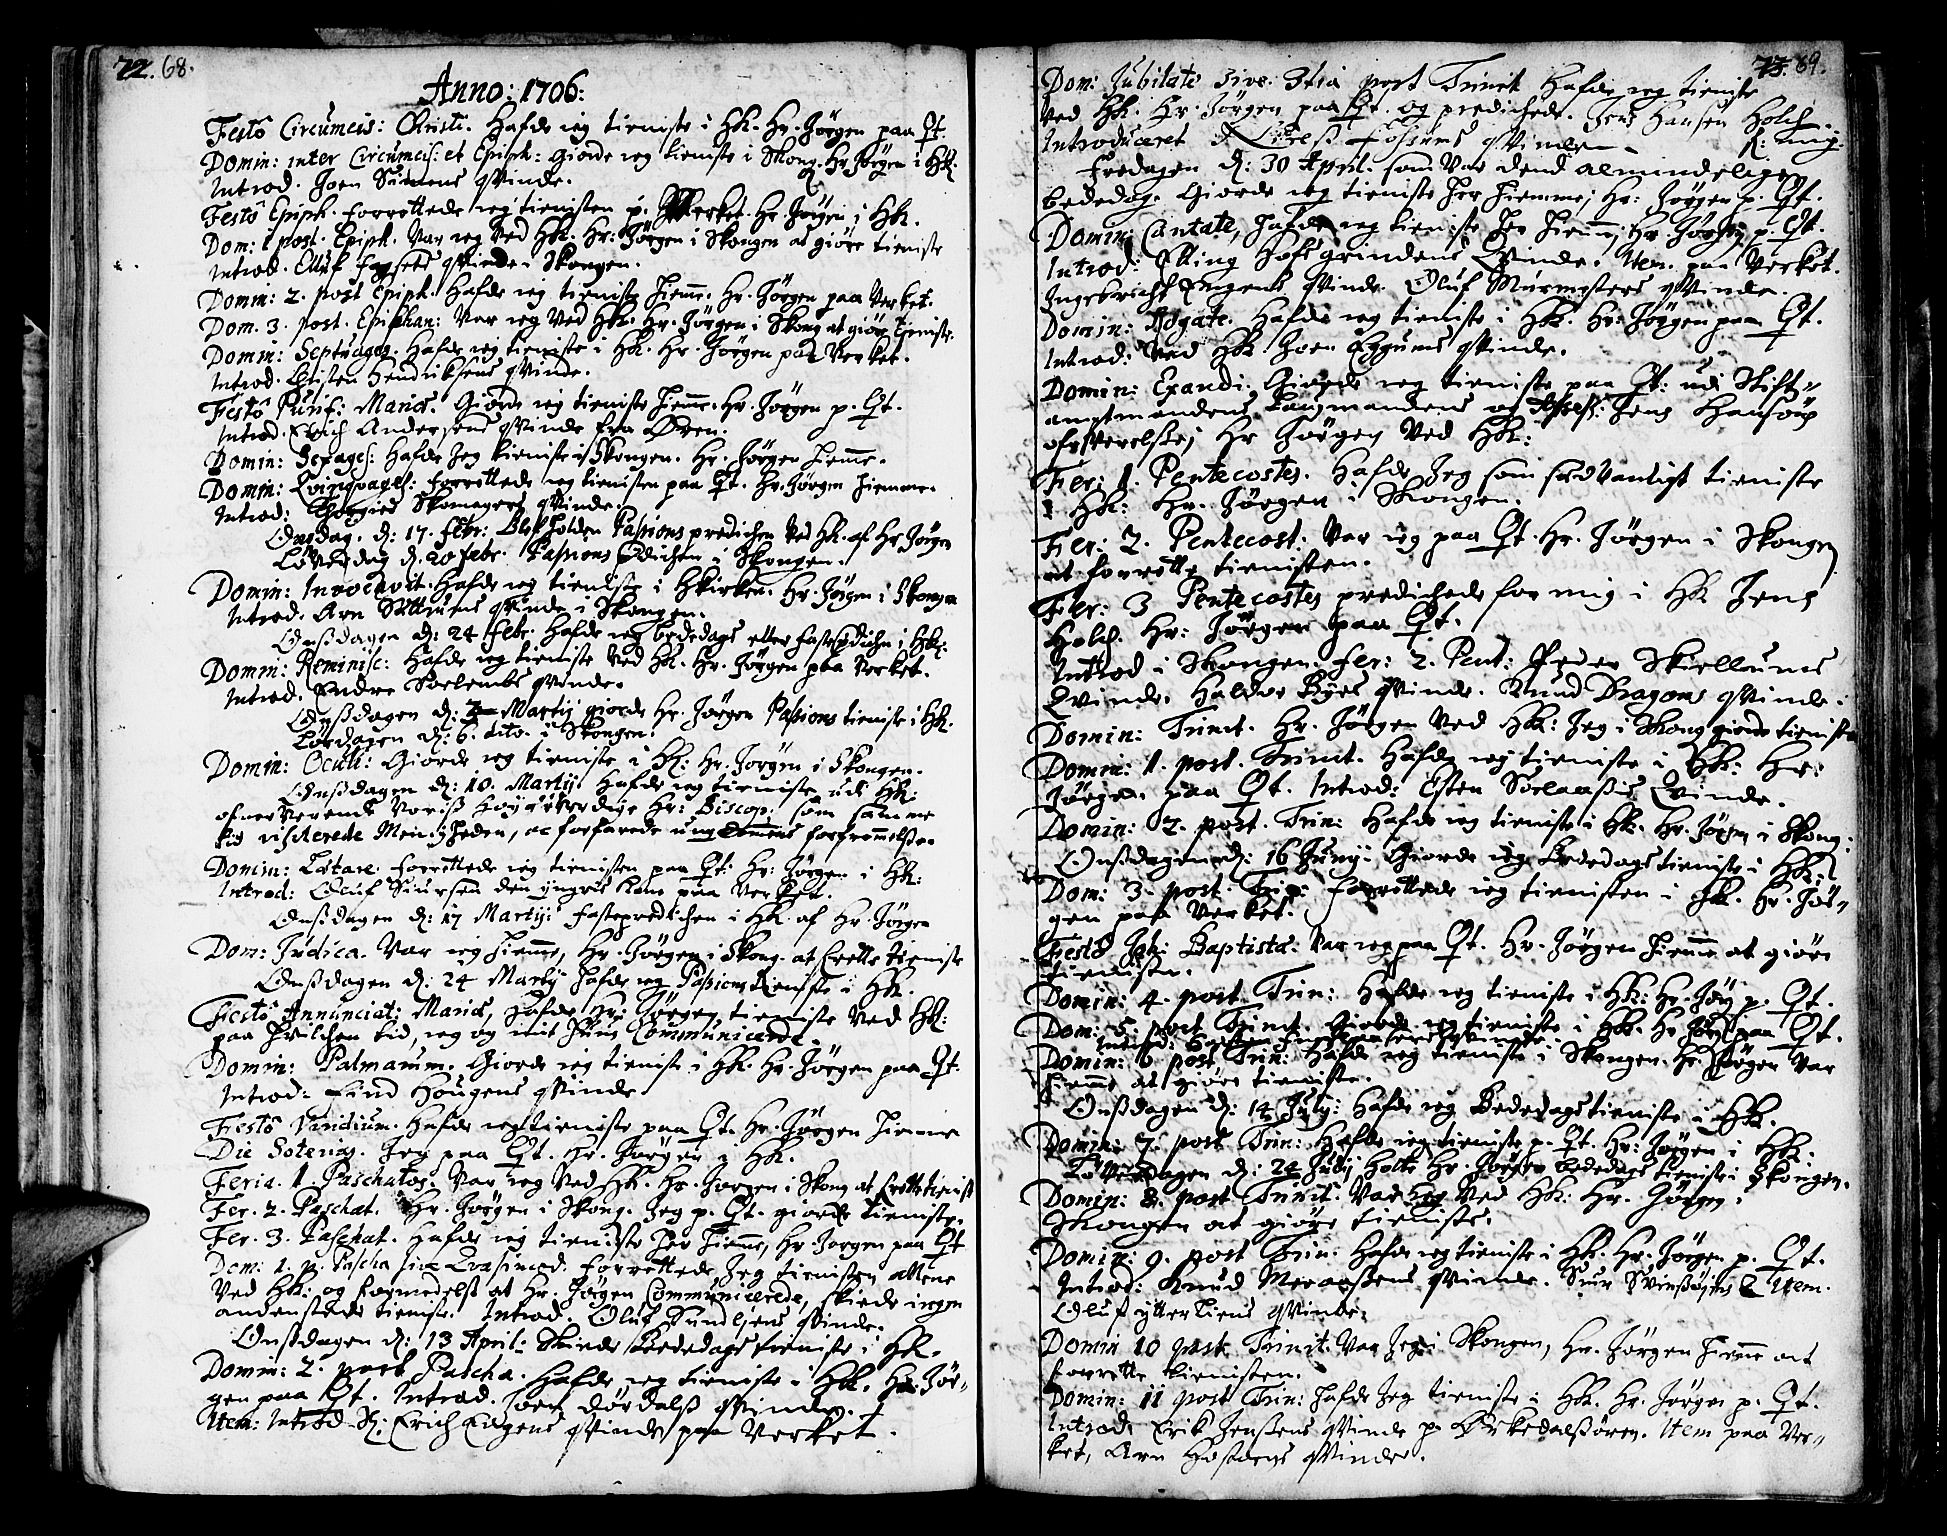 72. 68.
Anno: 1706:
Festo Circumcis: Christi. Hafde ieg tieniste i HK. Hr. Jørgen paa Qt.
Domin: inter Circumcis: et Epiph: Giorde ieg tieniste i Skong. Hr Jørgen i HK.
Introd. Joen Qvinde.
Festo Epiph. forrettede ieg tienisten p. Verket. Hr. Jørgen i HK.
Dom: 1 post. Epiph. Var ieg Ved HK. Hr: Jørgen i Skongen at giøre tieniste
Introd. Elluf Qvinde i Skongen.
Domin: 2. post Epiph. Hafde ieg tieniste hieme. Hr. Jørgen paa Verket.
Dom. 3. post. Epiphan: Var ieg Ved HK. Hr. Jørgen i Skong at giøre tieniste.
Domin: Septuages. Hafde ieg tieniste i HK. Hr. Jørgen paa Verket.
Introd. Christen Hendriksens Qvinde.
Festo Purif: Mariæ. Giorde ieg tieniste hieme. Hr. Jørgen p. Qt.
Introd. Erich Andersens Qvinde fra Øren.
Domin: Sexages: Hafde Jeg tieniste i Skongen. Hr. Jørgen hieme.
Domin: Qvinqvages: forrettede ieg tienisten paa Qt. Hr. Jørgen hiemme.
Introd: Skomagers Qvinde.
Onsdag. d: 17. febr: Blef holden Passions predichen Ved HK. af Hr Jørgen
Løverdag d. 20 febr. Passions Pdichen i Skongen.
Domin: Invocavit. Hafde ieg tieniste i HKirken. Hr. Jørgen i Skongen
Introd. Arn Qvinde i Skongen.
Onsdagen d: 24 febr. Hafde ieg bededags eller fastepdichn i HK:
Domin: Reminisc: Hafde ieg tieniste Ved HK. Hr. Jørgen paa Verket.
Introd. Endre Qvinde.
Onsdagen d: 3 Martij giorde Hr. Jørgen Passions tieniste i HK.
Lørdagen d: 6. dito. i Skongen.
Domin: Oculi: Giorde ieg tieniste i HK: Hr. Jørgen i Skongen.
Onsdagen d: 10. Martij. Hafde ieg tieniste udi HK:
ofververende Voris Høyærverdige Hr: Biscop, som samme
tid visiterede Menigheden, oc forfarede ungdomens forfremelse.
Domin: Lætare. forrettede ieg tienisten paa Qt: Hr: Jørgen i HK:
Introd: Oluf Siursen den yngris Kone paa Verket.
Onsdagen d: 17 Martij: fastepredichen i HK. af Hr. Jørgen
Dom: Judica. Var ieg hieme, Hr. Jørgen i Skong. at forette tieniste
Onsdagen d: 24 Martij hafde ieg Passions tieniste i HK.
Festo Annunciat: Mariæ, Hafde Hr: Jørgen tieniste Ved HK:
paa hvilchen tid, ieg og mit huus Communicerde.
Domin: Palmarum. Giorde ieg tieniste i HK. Hr. Jørgen paa Qt.
Introd: Lind Hougens Qvinde.
Festo Viridium. Hafde ieg tieniste paa Qt. Hr. Jørgen hieme
Die Soterias. Jeg paa Qt. Hr. Jørgen i HK.
Feria. 1. Paschatos. Var ieg Ved HK. Hr. Jørgen i Skong. at forette tieniste
Fer. 2. Paschat. Hr. Jørgen i Skong. Jeg p. Qt. giorde tieniste.
Fer. 3. Paschat. Hafde ieg tieniste her hieme, Hr Jørgen paa Qt
Dom: 1. p. Pascha sive Qvasimod. forrettede Jeg tienisten allene
Ved HK: og formedelst at Hr. Jørgen Communicerede, skiede ingen
andenstæds tieniste. Introd. Oluf Qvinde.
Onsdagen d: 13 April: skeede Bededags tieniste i HK.
Domin: 2. post Pascha. Hafde ieg tieniste i HK. Hr. Jør-
gen paa Qt. Introd. Joen Dørdals Qvinde.
Item: Introd. Sl: Erich Engens Qvinde paa Verket.
73. 89.
Dom: Jubilate sive 3tia post Trinit Hafde ieg tieniste
Ved HK. Hr. Jørgen paa Qt. og predichede. Jens Hansen Holch
Introduceret Fossums Qvinde. f: mig.
Fredagen d: 30 April. som Var dend almindelige
bededag. Giorde ieg tieniste her hiemme; Hr: Jørgen p. Qt.
Domin: Cantate, Hafde ieg tieniste her hieme, Hr Jørgen p. Qt.
Introd: Elling Hofsgrindens Qvinde. Item. paa Verket.
Ingebricht Engens Qvinde. Oluf Murmesters Qvinde.
Domin: Rogate. Hafde ieg tieniste i HK. Hr: Jørgen paa Qt.
Introd: Ved HK. Joen Eggums Qvinde.
Domin: Exaudi. Giorde ieg tieniste paa Qt: udi Stift-
amptmandens Laugmandens oc Assess: Jens Hansøns
ofververelse, Hr Jørgen Ved HK:
Fer: 1. Pentecostes. Hafde Jeg som sædvanligt tieniste
i HK: Hr. Jørgen i Skongen.
Fer: 2. Pentecost: Var ieg paa Qt. Hr. Jørgen i Skongen
at forrette tienisten.
Fer: 3 Pentecostes predichede for mig i HK Jens
Holch. Hr: Jørgen paa Qt.
Introd i Skongen. fer: 2. Pent: Peder Skiellaums
Qvinde. Haldor Byes Qvinde. Knud Dragons Qvinde.
Domin: Trinit. Hr. Jørgen Ved HK: Jeg i Skong giorde tieniste
Domin: 1. post. Trinit. Hafde ieg tieniste i HK: Hr:
Jørgen paa Qt. Introd: Esten Qvinde.
Domin: 2. post. Trin: Hafde ieg tieniste i HK. Hr. Jørgen i Skong:
Onsdagen d: 16 Junij. Giorde ieg Bededags tieniste i HK:
Dom: 3. post. Trin: forrettede ieg tienisten i HK. Hr. Jør-
gen paa Verket.
Festo Joh: Baptistæ. Var ieg paa Qt. Hr. Jørgen hieme at giøre
tieniste.
Domin: 4. post. Trin: Hafde ieg tieniste i HK: Hr. Jørg p. Qt.
Dom: 5. post Trinit. Giorde ieg tieniste i HK. Hr Jørg paa Qt.
Introd: Qvinde.
Domin: 6 post Trin: Hafde ieg tieniste i Skongen. Hr Jørgen Var
hieme at giøre tieniste.
Onsdagen d: 14 July: Hafde ieg Bededags tieniste i HK.
Domin: 7. post Trin: Hafde ieg tieniste p. Qt. Hr: Jørgen i HK:
Løverdagen d: 24 July holte Hr. Jørgen bededags tieniste i Skongen.
Domin: 8. post Trinit. Var ieg Ved HK: Hr. Jørgen i
Skongen at giøre tieniste.
Domin: 9. post Trin: Hafde ieg tieniste i HK. Hr. Jørgen p. Qt.
Introd: Knud Qvinde. Siur Q Item.
Oluf ytter Liens Qvinde.
Domin 10 post. Trinit. Var Jeg i Skongen, Hr. Jørgen hieme at
forrette tienisten.
Domin: 11 post Trin: Hafde Jeg tieniste i HK. Hr. Jørgen p. Qt.
Introd. Erik Jensens Qvinde p. Ørkedalsøren. Item paa Ver-
ket, Arn Qvinde.